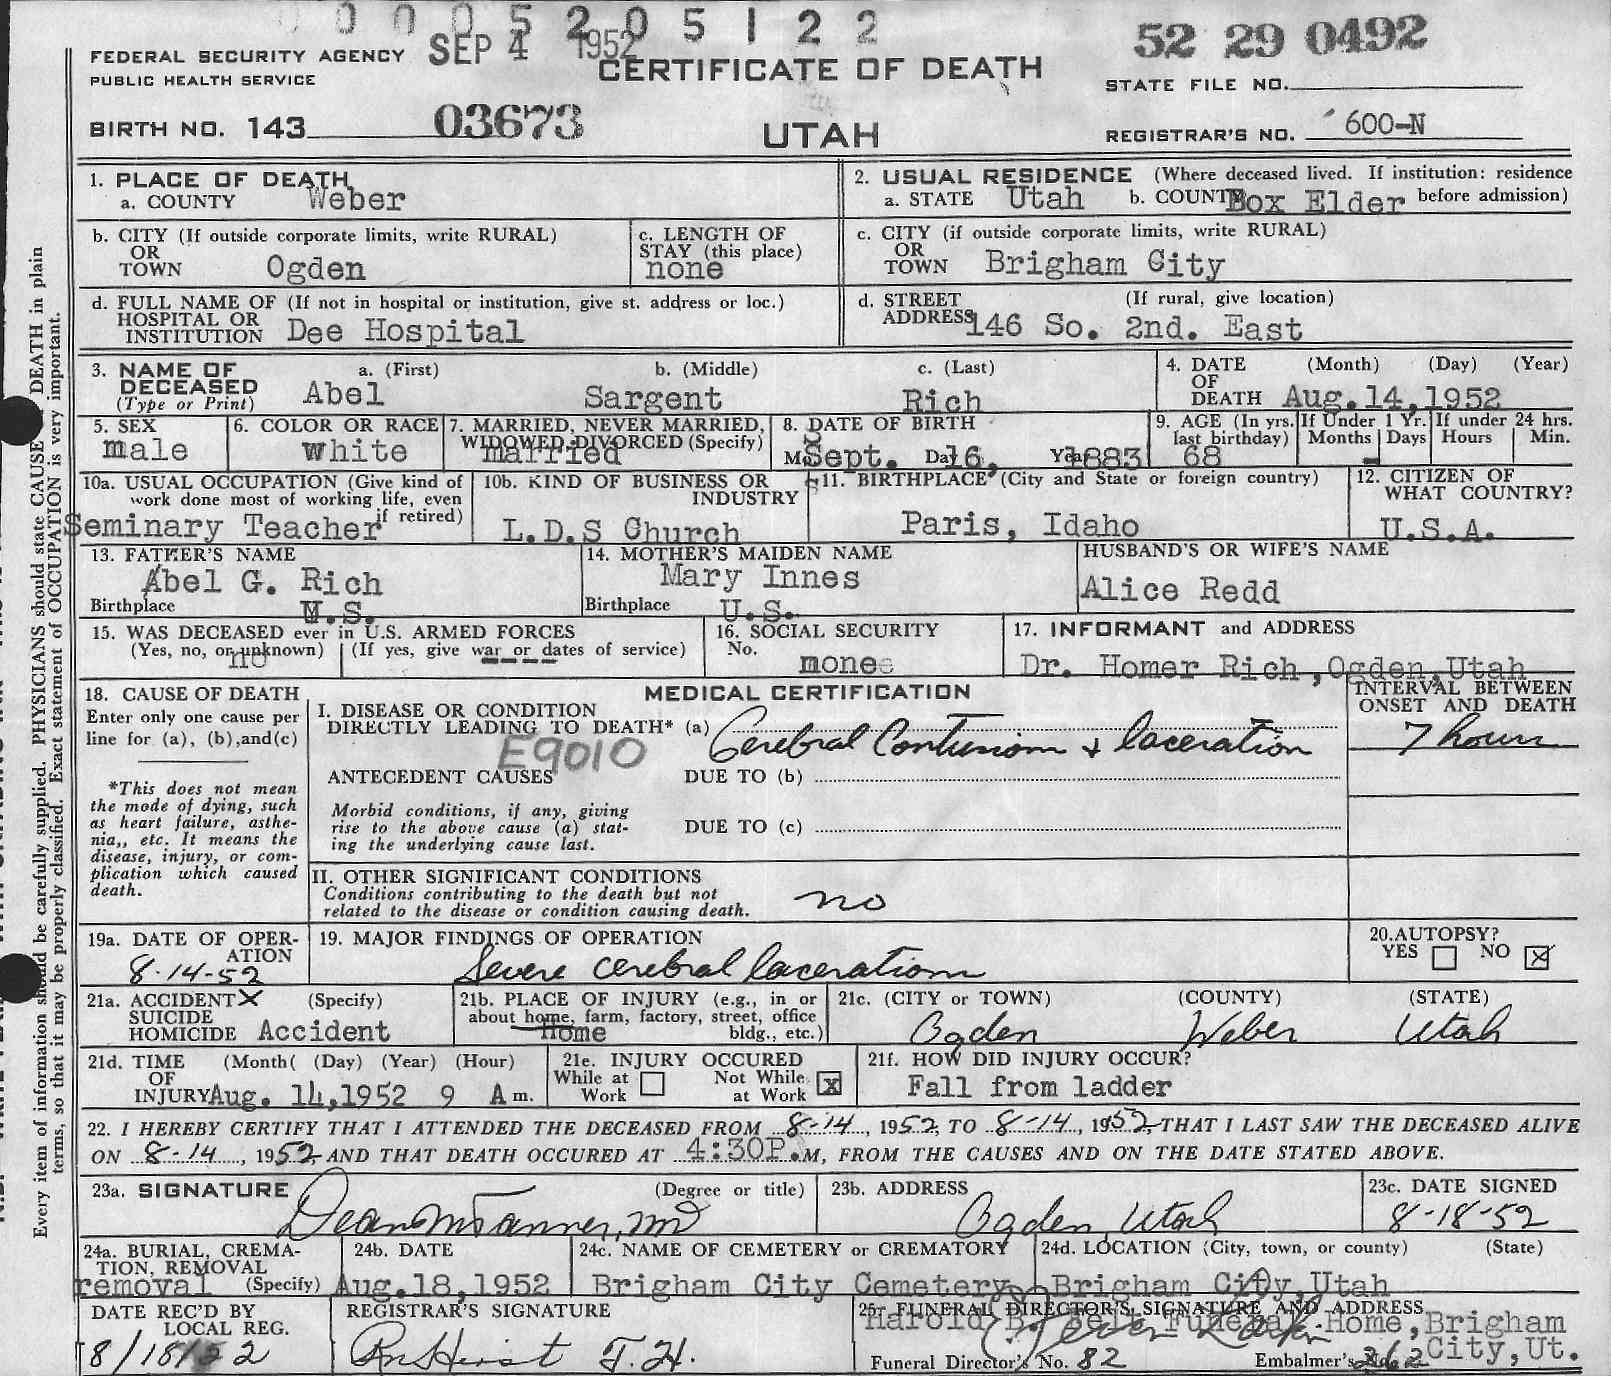 0 0 0 5 2 0 5 1 2 2
FEDERAL SECURITY AGENCY SEP 4 1952
PUBLIC HEALTH SERVICE
CERTIFICATE OF DEATH
52 29 0492
STATE FILE NO.
BIRTH NO. 143 03673
UTAH
REGISTRAR'S NO. 600-N
1. PLACE OF DEATH
a. COUNTY Weber
2. USUAL RESIDENCE (Where deceased lived. If institution: residence
a. STATE Utah b. COUNTY Box Elder before admission)
b. CITY (If outside corporate limits, write RURAL)
OR
TOWN Ogden
c. LENGTH OF
STAY (this place)
none
c. CITY (if outside corporate limits, write RURAL)
OR
TOWN Brigham City
d. FULL NAME OF (If not in hospital or institution, give st. address or loc.)
HOSPITAL OR
INSTITUTION Dee Hospital
d. STREET (If rural, give location)
ADDRESS 146 So. 2nd. East
3. NAME OF
DECEASED
(Type or Print)
a. (First) b. (Middle) c. (Last)
Abel Sargent Rich
4. DATE (Month) (Day) (Year)
OF
DEATH Aug.14,1952
5. SEX
male
6. COLOR OR RACE
White
7. MARRIED, NEVER MARRIED,
WIDOWED, DIVORCED (Specify)
married
8. DATE OF BIRTH
Mo. Sept. Day 16, Year 1883
9. AGE (In yrs.
last birthday)
68
If Under 1 Yr.
Months Days
-
If under 24 hrs.
Hours Min.
10a. USUAL OCCUPATION (Give kind of
work done most of working life, even
if retired)
Seminary Teacher
10b. KIND OF BUSINESS OR
INDUSTRY
L.D.S Church
11. BIRTHPLACE (City and State or foreign country)
Paris, Idaho
12. CITIZEN OF
WHAT COUNTRY?
U.S.A.
13. FATHER'S NAME
Abel G. Rich
Birthplace U.S.
14. MOTHER'S MAIDEN NAME
Mary Innes
Birthplace U.S.
HUSBAND'S OR WIFE'S NAME
Alice Redd
15. WAS DECEASED ever in U.S. ARMED FORCES
(Yes, no, or unknown) (If yes, give war or dates of service)
no ----
16. SOCIAL SECURITY
No.
none
17. INFORMANT and ADDRESS
Dr. Homer Rich ,Ogden,Utah
18. CAUSE OF DEATH
Enter only one cause per
line for (a), (b),and(c)
*This does not mean
the mode of dying, such
as heart failure, asthe-
nia,, etc. It means the
disease, injury, or com-
plication which caused
death.
MEDICAL CERTIFICATION
I. DISEASE OR CONDITION
DIRECTLY LEADING TO DEATH* (a) Cerebral Contusion & laceration
E9010
INTERVAL BETWEEN
ONSET AND DEATH
7 hours
ANTECEDENT CAUSES DUE TO (b)
Morbid conditions, if any, giving
rise to the above cause (a) stat- DUE TO (c)
ing the underlying cause last.
II. OTHER SIGNIFICANT CONDITIONS
Conditions contributing to the death but not
related to the disease or condition causing death.
no
19a. DATE OF OPER-
ATION
8-14-52
19. MAJOR FINDINGS OF OPERATION
Severe cerebral laceration
20.AUTOPSY?
YES NO X
21a. ACCIDENT X (Specify)
SUICIDE
HOMICIDE Accident
21b. PLACE OF INJURY (e.g., in or
about home, farm, factory, street, office
bldg., etc.)
Home
21c. (CITY or TOWN) (COUNTY) (STATE)
Ogden Weber Utah
21d. TIME (Month( (Day) (Year) (Hour)
OF
INJURY Aug. 14,1952 9 A m.
21e. INJURY OCCURED
While at Not While
Work at Work X
21f. HOW DID INJURY OCCUR?
Fall from ladder
22. I HEREBY CERTIFY THAT I ATTENDED THE DECEASED FROM 8-14, 1952, TO 8-14, 1952, THAT I LAST SAW THE DECEASED ALIVE
ON 8-14, 1952, AND THAT DEATH OCCURED AT 4:30P.M, FROM THE CAUSES AND ON THE DATE STATED ABOVE.
23a. SIGNATURE (Degree or title)
Dean M Tanner, MD
23b. ADDRESS
Ogden, Utah
23c. DATE SIGNED
8-18-52
24a. BURIAL, CREMA-
TION, REMOVAL
(Specify)
removal
24b. DATE
Aug.18,1952
24c. NAME OF CEMETERY or CREMATORY
Brigham City Cemetery
24d. LOCATION (City, town, or county) (State)
Brigham City,Utah
DATE REC'D BY
LOCAL REG.
8/18/52
REGISTRAR'S SIGNATURE
25. FUNERAL DIRECTOR'S SIGNATURE AND ADDRESS
Harold B. Felt Funeral Home,Brigham
City,Ut.
Funeral Director's No. 82 Embalmer's No. 262
Every item of information should be carefully supplied. PHYSICIANS should state CAUSE OF DEATH in plain
terms, so that it may be properly classified. Exact statement of OCCUPATION is very important.